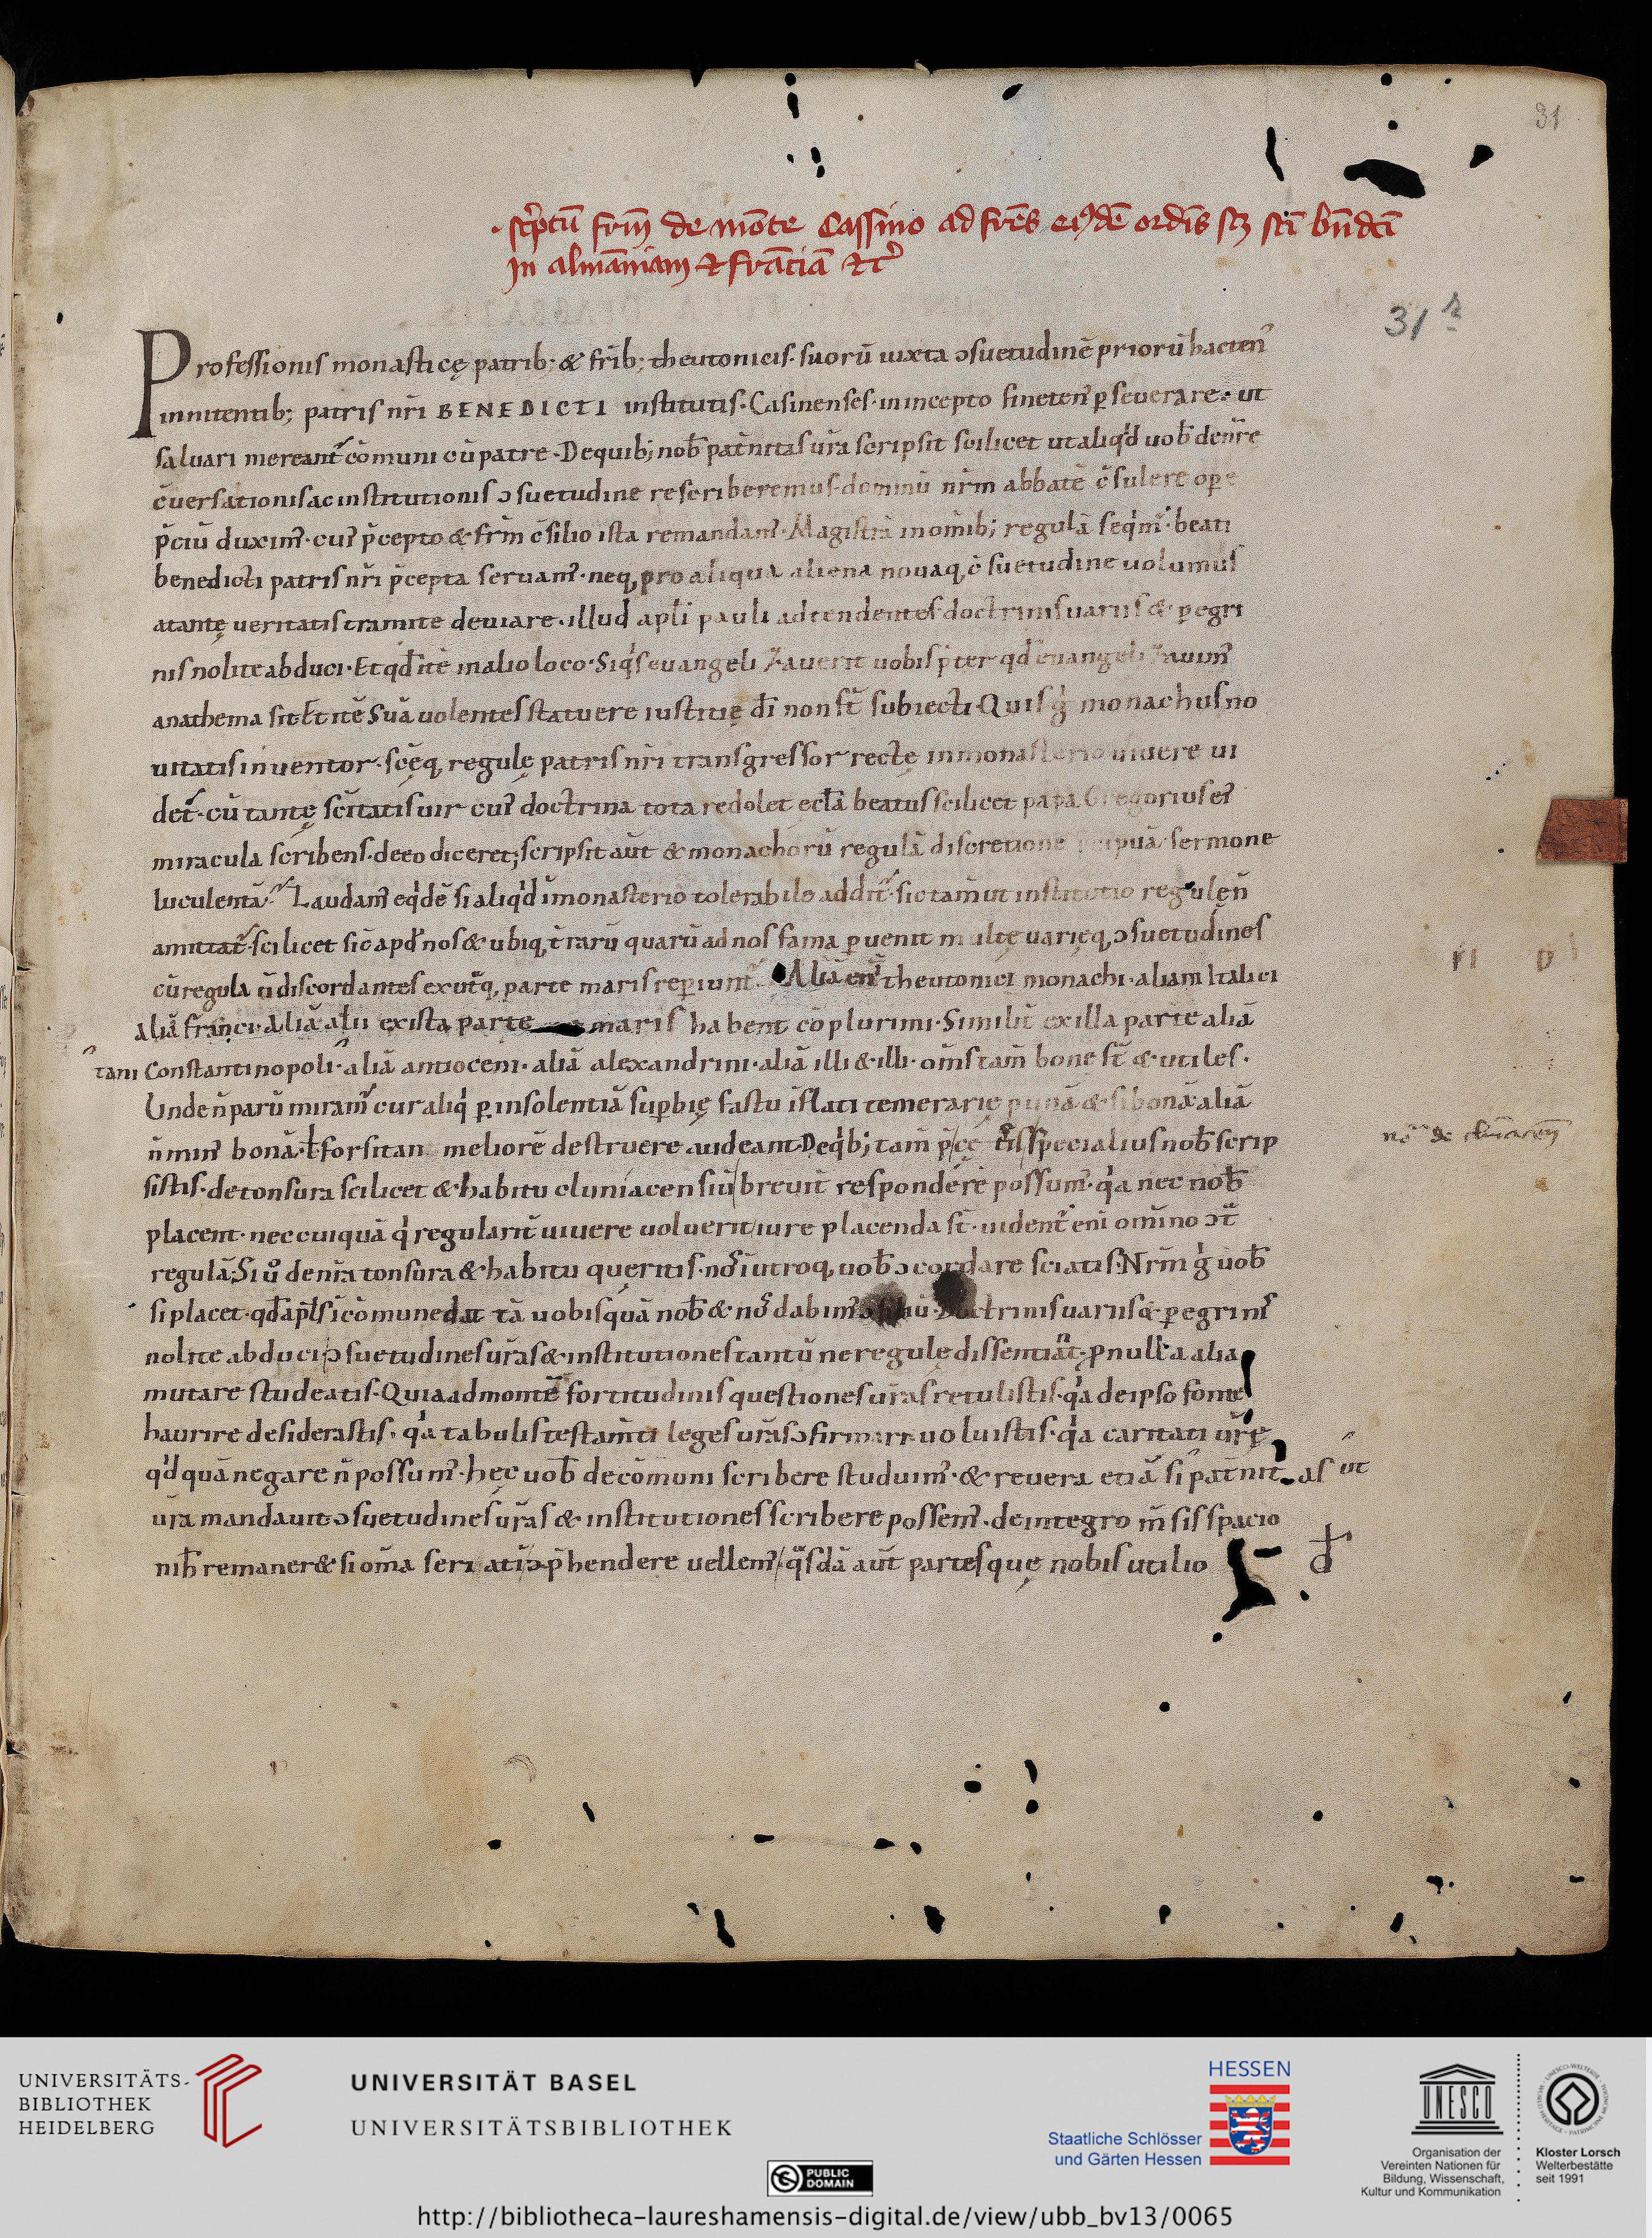 31
· sc̄ptū frm̄ de mōte Cassino ad frēs eiꝰdē ordīs scꝫ scī bn̄dcī
in almāniam et frāciā etcꝰ
31 r
Professionis monasticę patrib; & frīb; theutonicis · suorū iuxta ɔsuetudinē priorū hactenꝰ
innitentib; patris nr̄i BENEDICTI institutis · Casinenses · in incepto finetenꝰ ꝑseuerare · ut
saluari mereant᷑ cōmuni cū patre · De quib; nob̄ pat̄nitas ur̄a scripsit scilicet ut aliqͥd uob̄ de nr̄e
c̄uersationis ac institutionis ɔsuetudine rescriberemus · dominū nr̄m abbatē c̄sulere opꝑe
p̄ciū duximꝰ · cuiꝰ p̄cepto & frm̄ c̄silio ista remandamꝰ · Magistrā in om̄ib; regulā seqͥmᷣ · beati
benedicti patris nr̄i p̄cepta seruamꝰ · neqꝫ pro aliqua aliena nouaqꝫ c̄suetudine uolumus
a tantę ueritatis tramite deuiare · illud apl̄i pauli adtendentes doctrinis uariis & ꝑegri
nis nolite abduci · Et qd̄ itē in alio loco · Siqͥs euangelizauerit uobis p̄ter qd̄ euangelizauimꝰ
anathema sit Et itē Suā uolentes statuere iustitię dī non st̄ subiecti · Quis gͥ monachus no
uitatis inuentor · scęqꝫ regulę patris nr̄i transgressor recte in monasterio uiuere ui
det᷑ · cū tantę scitatis uir cuiꝰ doctrina tota redolet eccl̄a beatus scilicet papa Gregorius eiꝰ
miracula scribens · de eo diceret; scripsit aūt & monachorū regulā discretione precipuā sermone
luculentā · Laudamꝰ eqͥdē si aliqͥd ī monasterio tolerabile addit᷑ · sic tam̄ ut institutio regulę n̄
amittat᷑ · scilicet sic apd̄ nos & ubiqꝫ t̄rarū quarū ad nos fama ꝑuenit multę uarięqꝫ ɔsuetudines
cū regula n̄ discordantes ex ut̄qꝫ parte maris reꝑiunt᷑ · Aliā eni theutonici monachi · aliam Italici
aliā franci · Aliā alii ex ista parte maris habent cōplurimi · Similit̄ ex illa parte aliā
Constantinopoli tani · aliā antioceni · aliā alexandrini · aliā illi & illi · om̄s tam̄ bone st̄ & utiles ·
Unde n̄ parū miram᷑ cur aliqͥ ꝑ insolentiā suꝑbię fastu īflati temerarię punā & si bonā aliā
n̄ minꝰ bonā · l̄ forsitan meliorē destruere audeant · De qͥb; tam̄ p̄cę ūis specialius nob̄ scrip
sistis · de tonsura scilicet & habitu cluniacensiū breuit̄ respondere possumꝰ · qͥa nec nob̄
placent · nec cuiquā qͥ regularit̄ uiuere uoluerit iure placenda st̄ · uident᷑ eni om̄ino ɔt̄
regulā; Si uͦ de nr̄a tonsura & habitu queritis · nos̄ ī utroqꝫ uob̄ ɔcordare sciatis · Nr̄m gͥ uob̄
si placet · qd̄ apl̄s ī cōmune dat tā uobis quā nob̄ & nos̄ dabimꝰ ɔsiliū · Doctrinis uariis & ꝑegrinis
nolite abduci ɔsuetudines ur̄as & institutiones tantū ne regulę dissentiāt · ꝓ nulla alia
mutare studeatis · Quia ad montē fortitudinis questiones ur̄as retulistis · qͥa de ipso fonte
haurire desiderastis · qͥa tabulis testam̄ti leges ur̄as ɔfirmari uoluistis · qͥa caritati ur̄ę
qͥdquā negare n̄ possumꝰ · hęc uob̄ de cōmuni scribere studuimꝰ · & reuera etiā si pat̄nit as ut
ur̄a mandauit ɔsuetudines ur̄as & institutiones scribere possemꝰ · de integro m̄sis spacio
nih̄ remaner& si om̄a seriatī ɔp̄hendere uellemꝰ qͣsdā aūt partes quę nobis utilio
nō de cluniacen̄
UNIVERSITÄTS-
BIBLIOTHEK
HEIDELBERG
UNIVERSITÄT BASEL
UNIVERSITÄTSBIBLIOTHEK
PUBLIC
DOMAIN
HESSEN
Staatliche Schlösser
und Gärten Hessen
UNESCO
Organisation der
Vereinten Nationen für
Bildung, Wissenschaft,
Kultur und Kommunikation
Kloster Lorsch
Welterbestätte
seit 1991
http://bibliotheca-laureshamensis-digital.de/view/ubb_bv13/0065